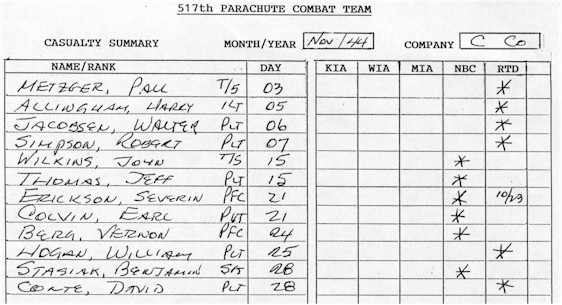 517th PARACHUTE COMBAT TEAM
CASUALTY SUMMARY MONTH/YEAR Nov/44 COMPANY C Co
NAME/RANK DAY KIA WIA MIA NBC RTD
METZGER, PAUL T/5 03 *
ALLINGHAM, HARRY 1LT 05 *
JACOBSEN, WALTER PLT 06 *
SIMPSON, ROBERT PLT 07 *
WILKINS, JOHN T/5 15 *
THOMAS, JEFF PLT 15 *
ERICKSON, SEVERIN PFC 21 * 10/23
COLVIN, EARL PVT 21 *
BERG, VERNON PFC 24 *
HOGAN, WILLIAM PLT 25 *
STASIAK, BENJAMIN 28 *
CONTE, DAVID PLT 28 *